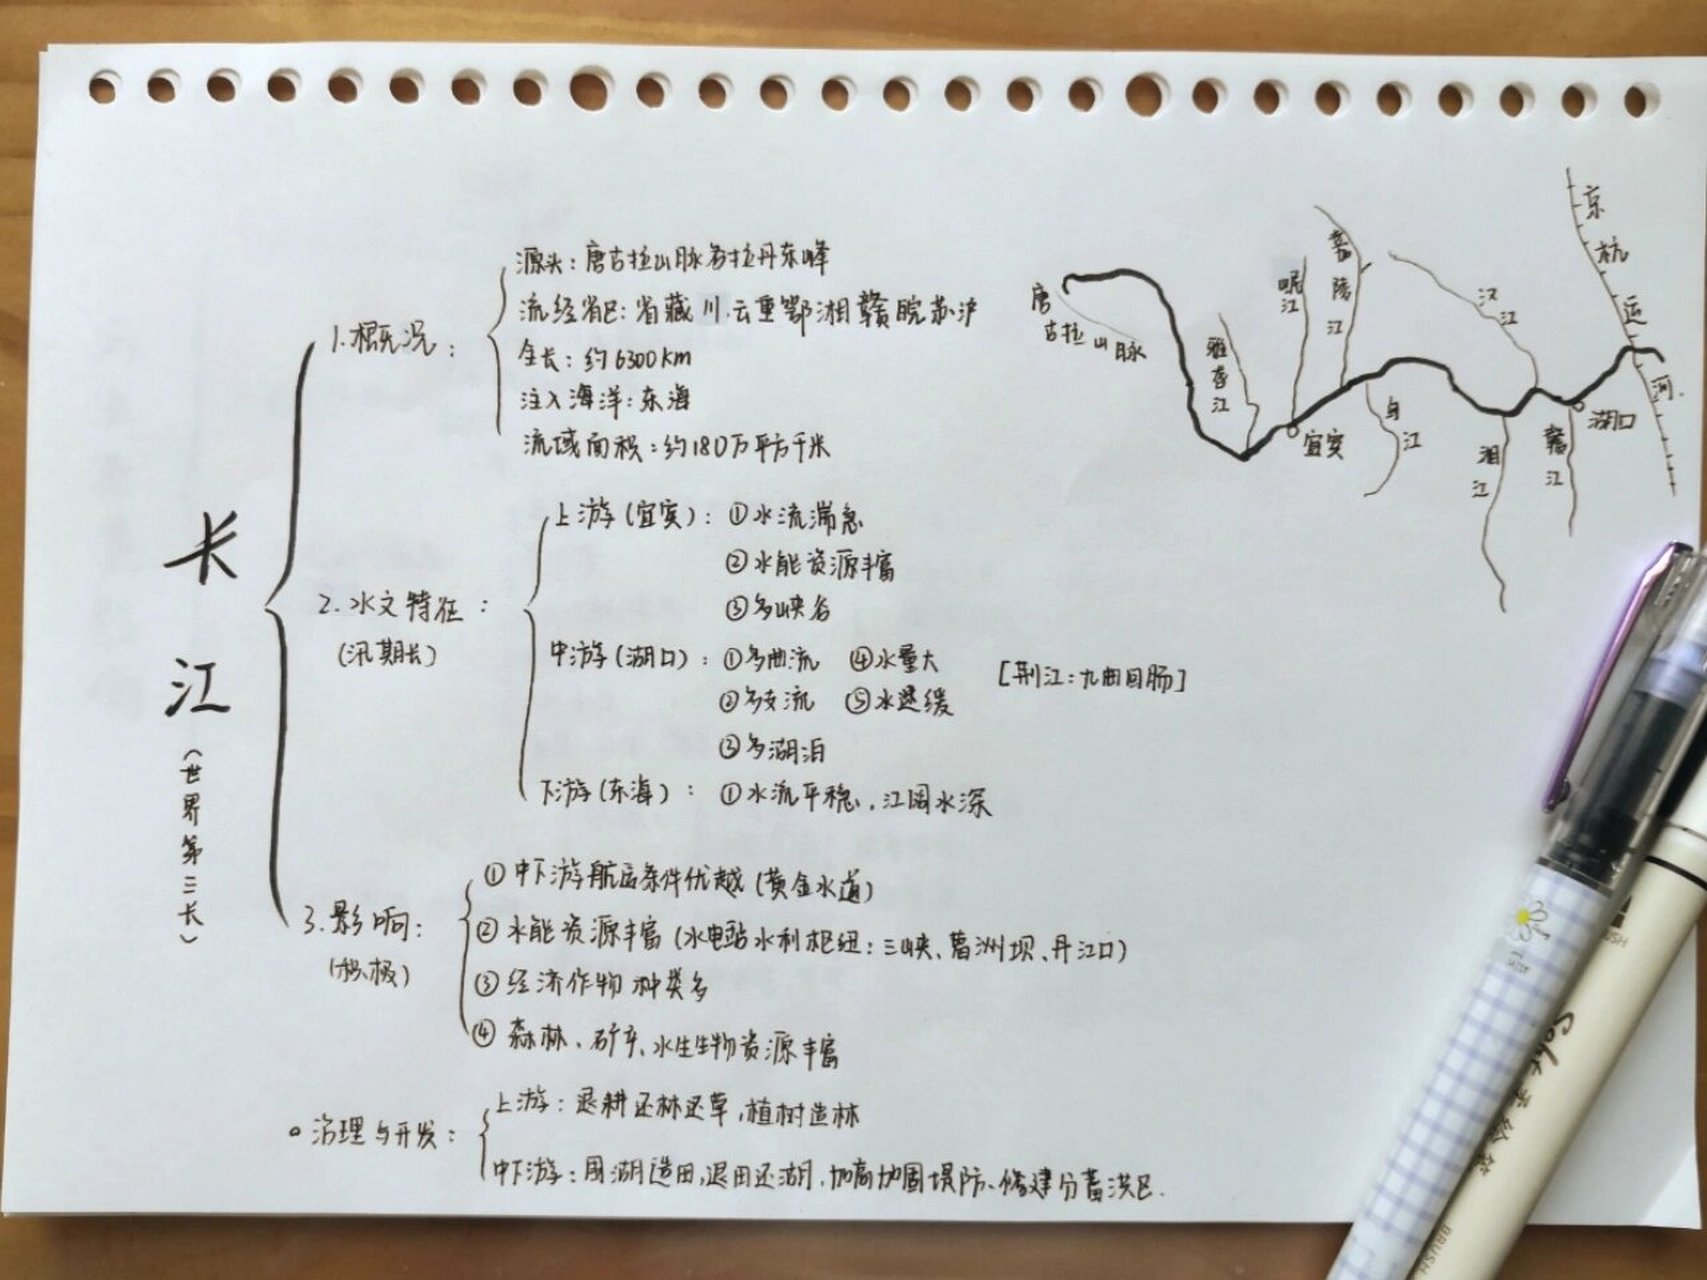 长江
(世界第三长)
1.概况:
源头:唐古拉山脉各拉丹东峰
流经省区:省藏川云重鄂湘赣皖苏沪
全长:约6300km
注入海洋:东海
流域面积:约180万平方千米
2.水文特征:
(汛期长)
上游(宜宾):①水流湍急
②水能资源丰富
③多峡谷
中游(湖口):①多曲流 ④水量大
[荆江:九曲回肠]
②多支流 ⑤水速缓
③多湖泊
下游(东海):①水流平稳,江阔水深
3.影响:
(积极)
①中下游航运条件优越(黄金水道)
②水能资源丰富(水电站水利枢纽:三峡、葛洲坝、丹江口)
③经济作物种类多
④森林、矿产、水生生物资源丰富
治理与开发:
上游:退耕还林还草,植树造林
中下游:围湖造田,退田还湖,加高加固堤防、修建分蓄洪区.
唐古拉山脉
雅砻江
岷江
嘉陵江
汉江
京杭运河.
宜宾
乌江
湘江
赣江
湖口